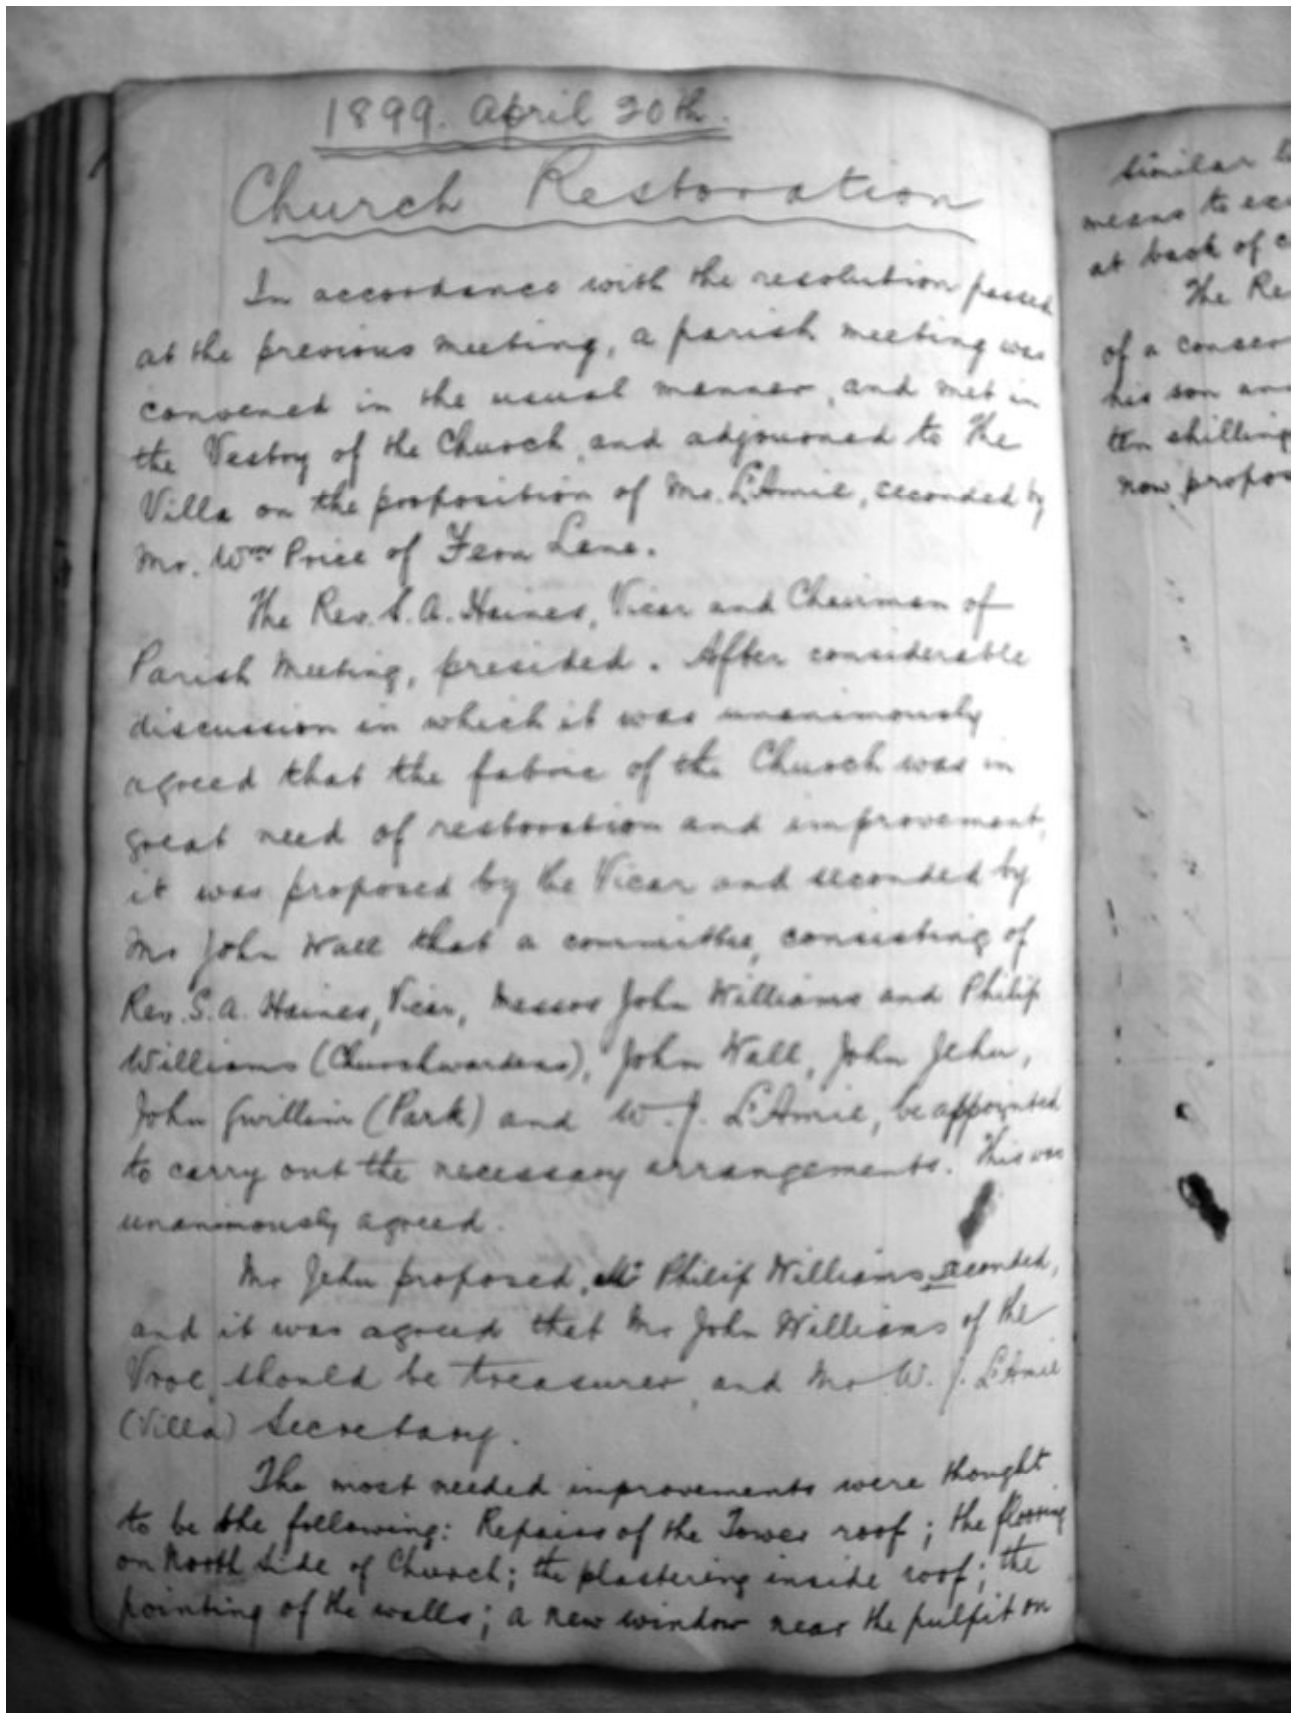 1899. April 20th.
Church Restoration
In accordance with the resolution passed
at the previous meeting, a parish meeting was
convened in the usual manner, and met in
the Vestry of the Church, and adjourned to the
Villa on the proposition of Mr. L'Amie, seconded by
Mr. Wm Price of Fern Lane.
The Rev. S. A. Haines, Vicar and Chairman of
Parish Meeting, presided. After considerable
discussion in which it was unanimously
agreed that the fabric of the Church was in
great need of restoration and improvement,
it was proposed by the Vicar and seconded by
Mr John Wall that a committee, consisting of
Rev. S. A. Haines, Vicar, Messrs John Williams and Philip
Williams (Churchwardens), John Wall, John Jehu,
John Gwillim (Park) and W. J. L'Amie, be appointed
to carry out the necessary arrangements. This was
unanimously agreed.
Mr Jehu proposed, Mr Philip Williams seconded,
and it was agreed that Mr John Williams of the
Vroe, should be treasurer, and Mr W. J. L'Amie
(Villa) Secretary.
The most needed improvements were thought
to be the following: Repairs of the Tower roof; the flooring
on North Side of Church; the plastering inside roof; the
pointing of the walls; a new window near the pulpit on
similar
means to
at back of
The
of a
his son
ten
now